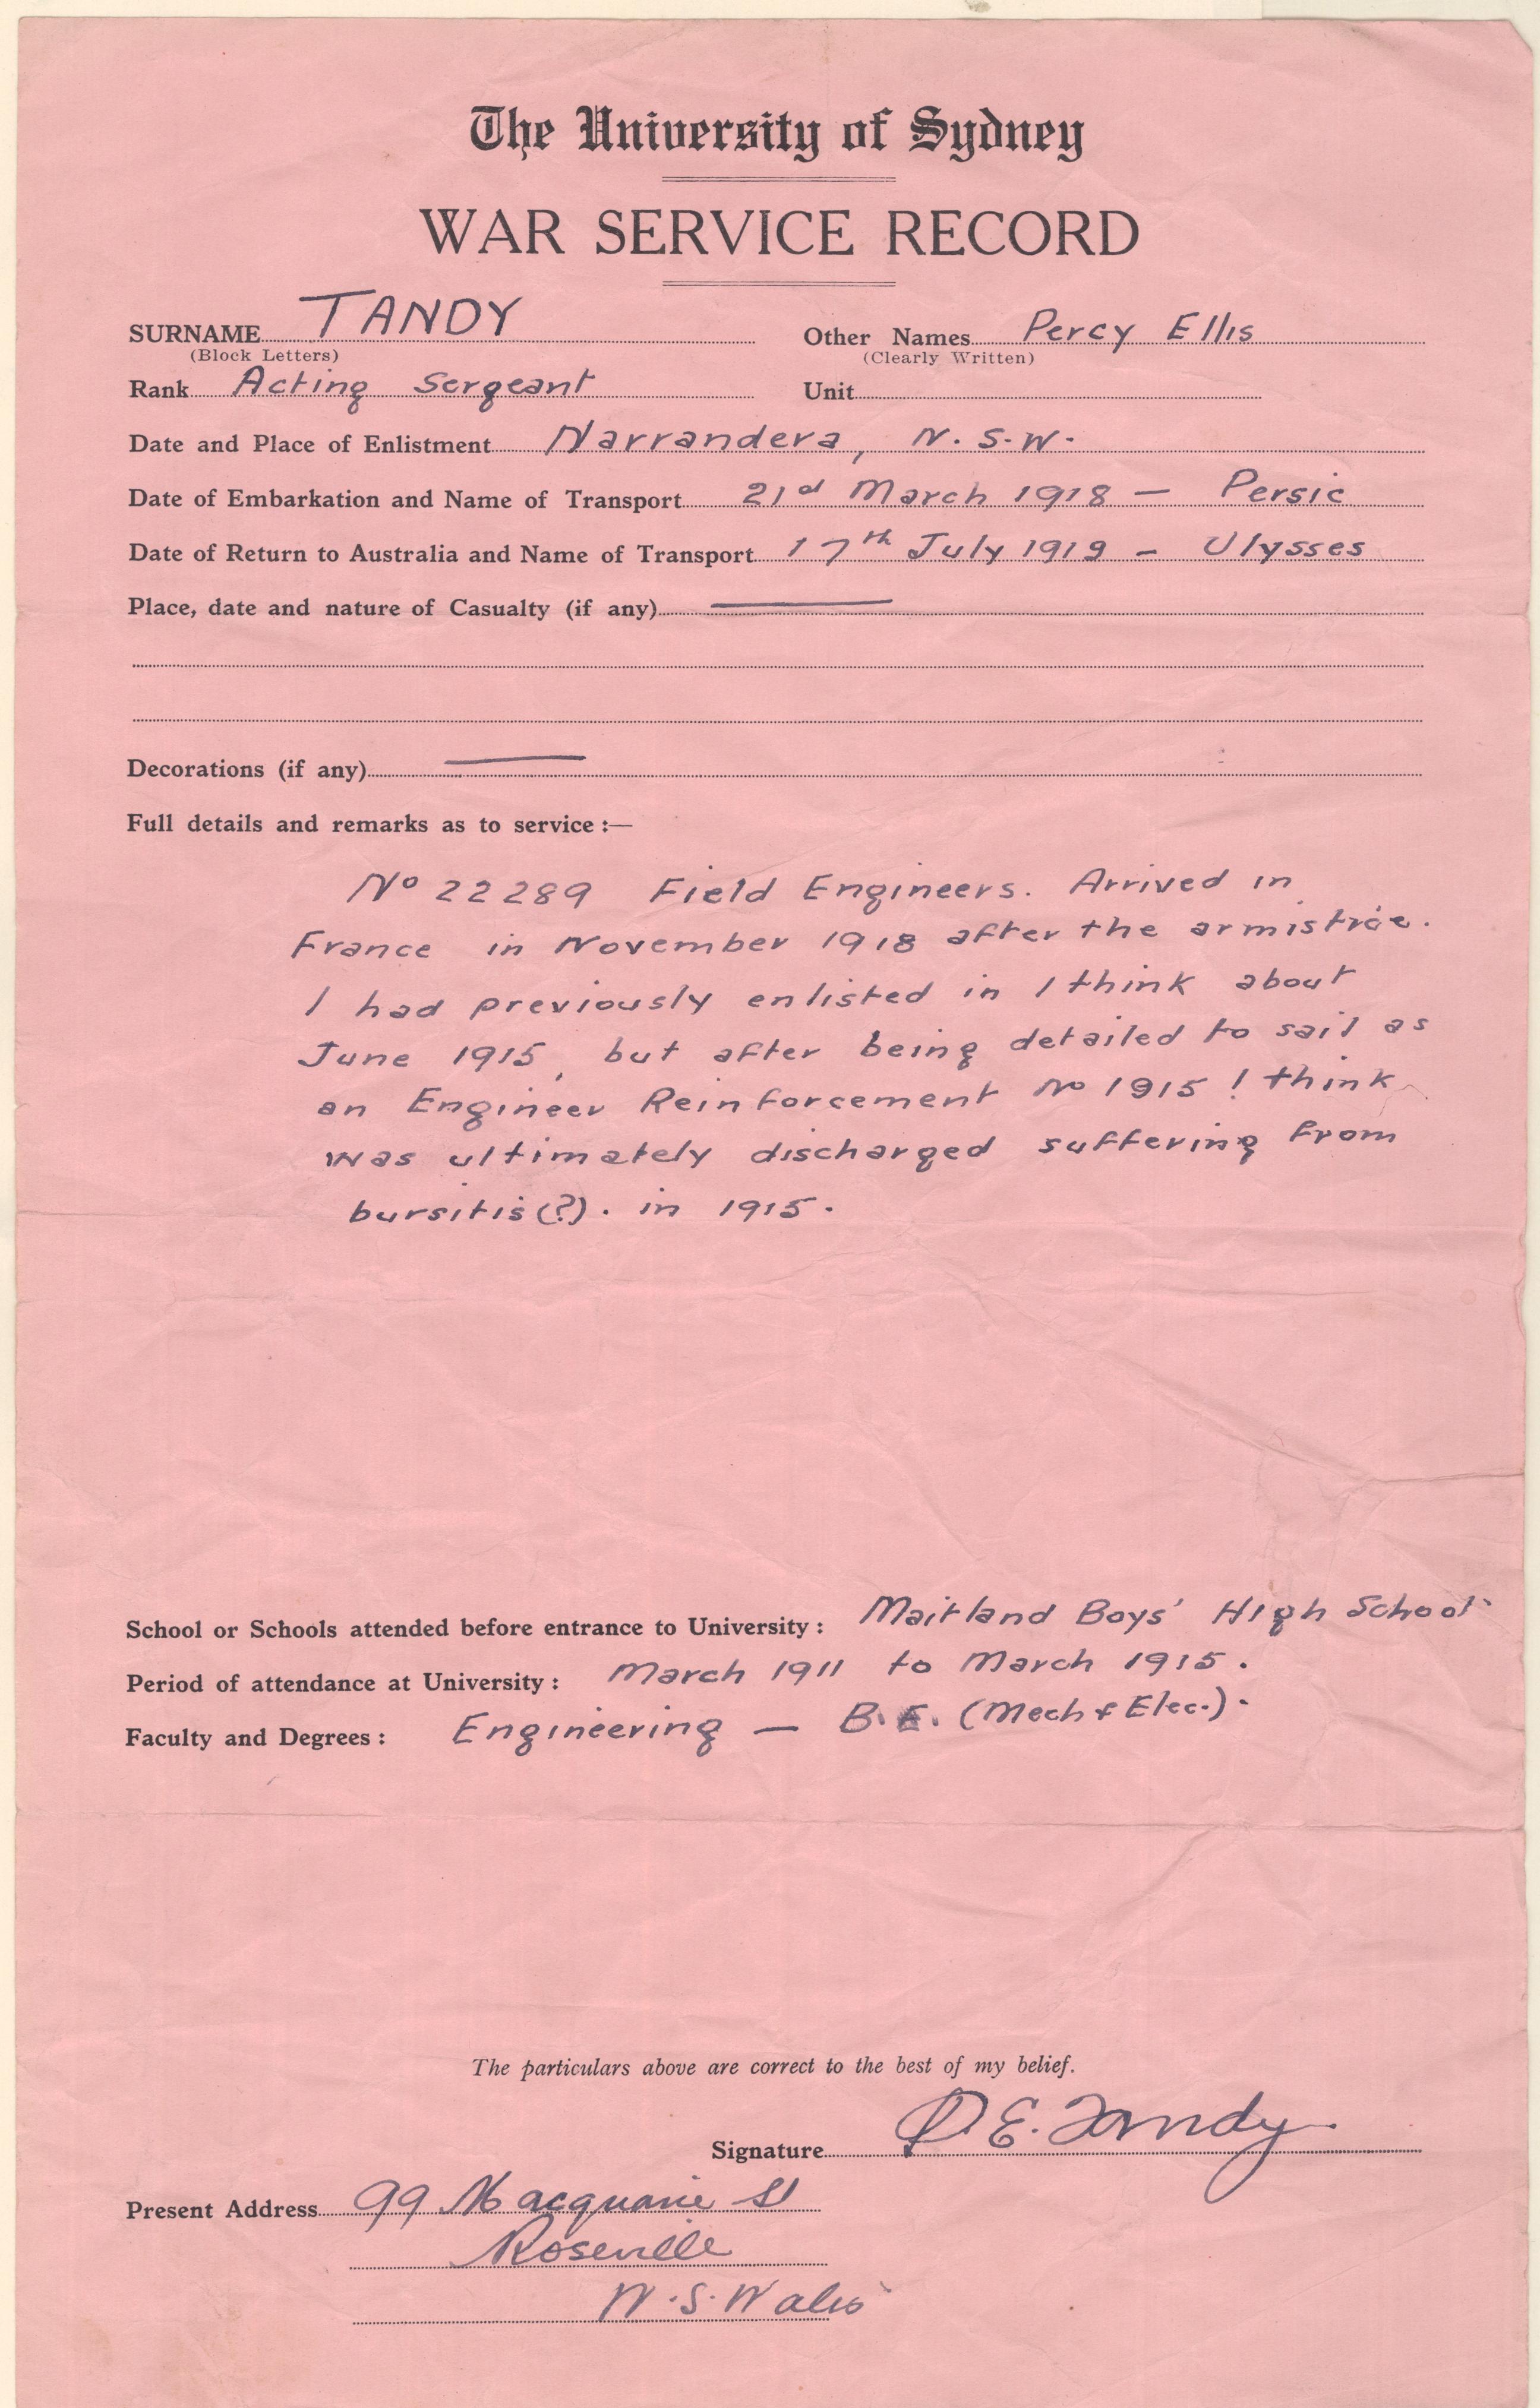 The University of Sydney
WAR SERVICE RECORD
SURNAME TANDY Other Names Percy Ellis
(Block Letters) (Clearly Written)
Rank Acting Sergeant Unit
Date and Place of Enlistment Narrandera, N.S.W.
Date of Embarkation and Name of Transport 21st March 1918 — Persic
Date of Return to Australia and Name of Transport 17th July 1919 — Ulysses
Place, date and nature of Casualty (if any) —
Decorations (if any) —
Full details and remarks as to service:—
No 22289 Field Engineers. Arrived in
France in November 1918 after the armistice.
I had previously enlisted in I think about
June 1915, but after being detailed to sail as
an Engineer Reinforcement No 1915 I think
was ultimately discharged suffering from
bursitis(?). in 1915.
School or Schools attended before entrance to University: Maitland Boys' High School
Period of attendance at University: March 1911 to March 1915.
Faculty and Degrees: Engineering — B.E. (Mech & Elec.).
The particulars above are correct to the best of my belief.
Signature P.E. Tandy
Present Address 99 Macquarie St
Roseville
N.S. Wales